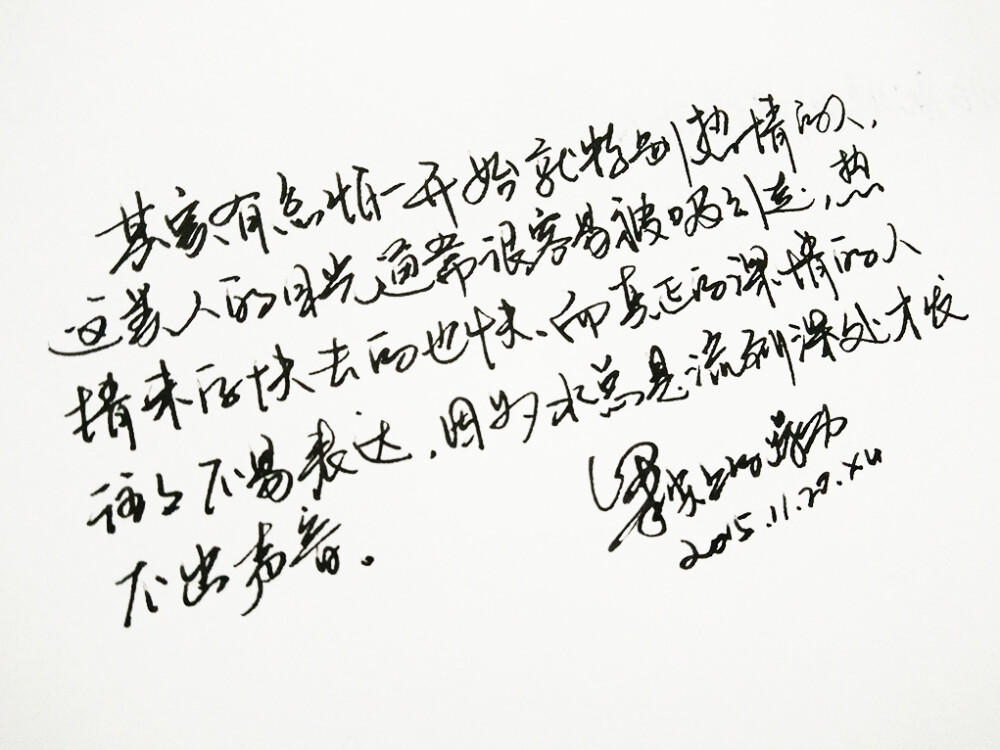 其实有点怕一开始就特别热情的人,
这类人的目光通常很容易被吸引走,热
情来的快去的也快、而真正的深情的人
往往不易表达,因为水总是流到深处才发
不出声音。
2015.11.20.xu